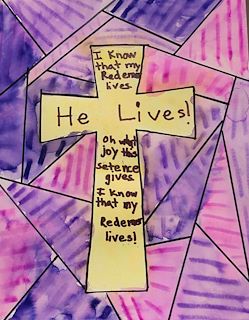 I know
that my
Redemer
lives.
He Lives!
oh what
joy this
setence
gives.
I know
that my
Redemer
lives!